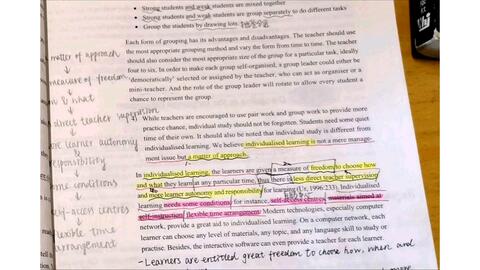 Strong students and weak students are mixed together
• Strong students and weak students are group separately to do different tasks
• Group the students by drawing lots.
Each form of grouping has its advantages and disadvantages. The teacher should use
the most appropriate grouping method and vary the form from time to time. The teacher
should also consider the most appropriate size of the group for a particular task, ideally
four to six. In order to make each group self-organised, a group leader could either be
'democratically' selected or assigned by the teacher, who can act as organiser or a
mini-teacher. And the role of the group leader will rotate to allow every student a
chance to represent the group.
While teachers are encouraged to use pair work and group work to provide more
practice chance, individual study should not be forgotten. Students need some quiet
time of their own. It should also be noted that individual study is different from
individualised learning. We believe individualised learning is not a mere manage-
ment issue but a matter of approach.
In individualised learning, the learners are given a measure of freedom to choose how
and what they learn at any particular time, thus there is less direct teacher supervision
and more learner autonomy and responsibility for learning (Ur, 1996:233). Individualised
learning needs some conditions for instance, self-access centres, materials aimed at
self-instruction, flexible time arrangement. Modern technologies, especially computer
network, provide a great aid to individualised learning. On a computer network, each
learner can choose any level of materials, any topic, and any language skill to study or
practise. Besides, the interactive software can even provide a teacher for each learner.
- Learners are entitled great freedom to choose how, when and
matter of approach
measure of freedom
how & what
direct teacher supervision
more learner autonomy
responsibility
some conditions
self-access centres
flexible time
arrangement